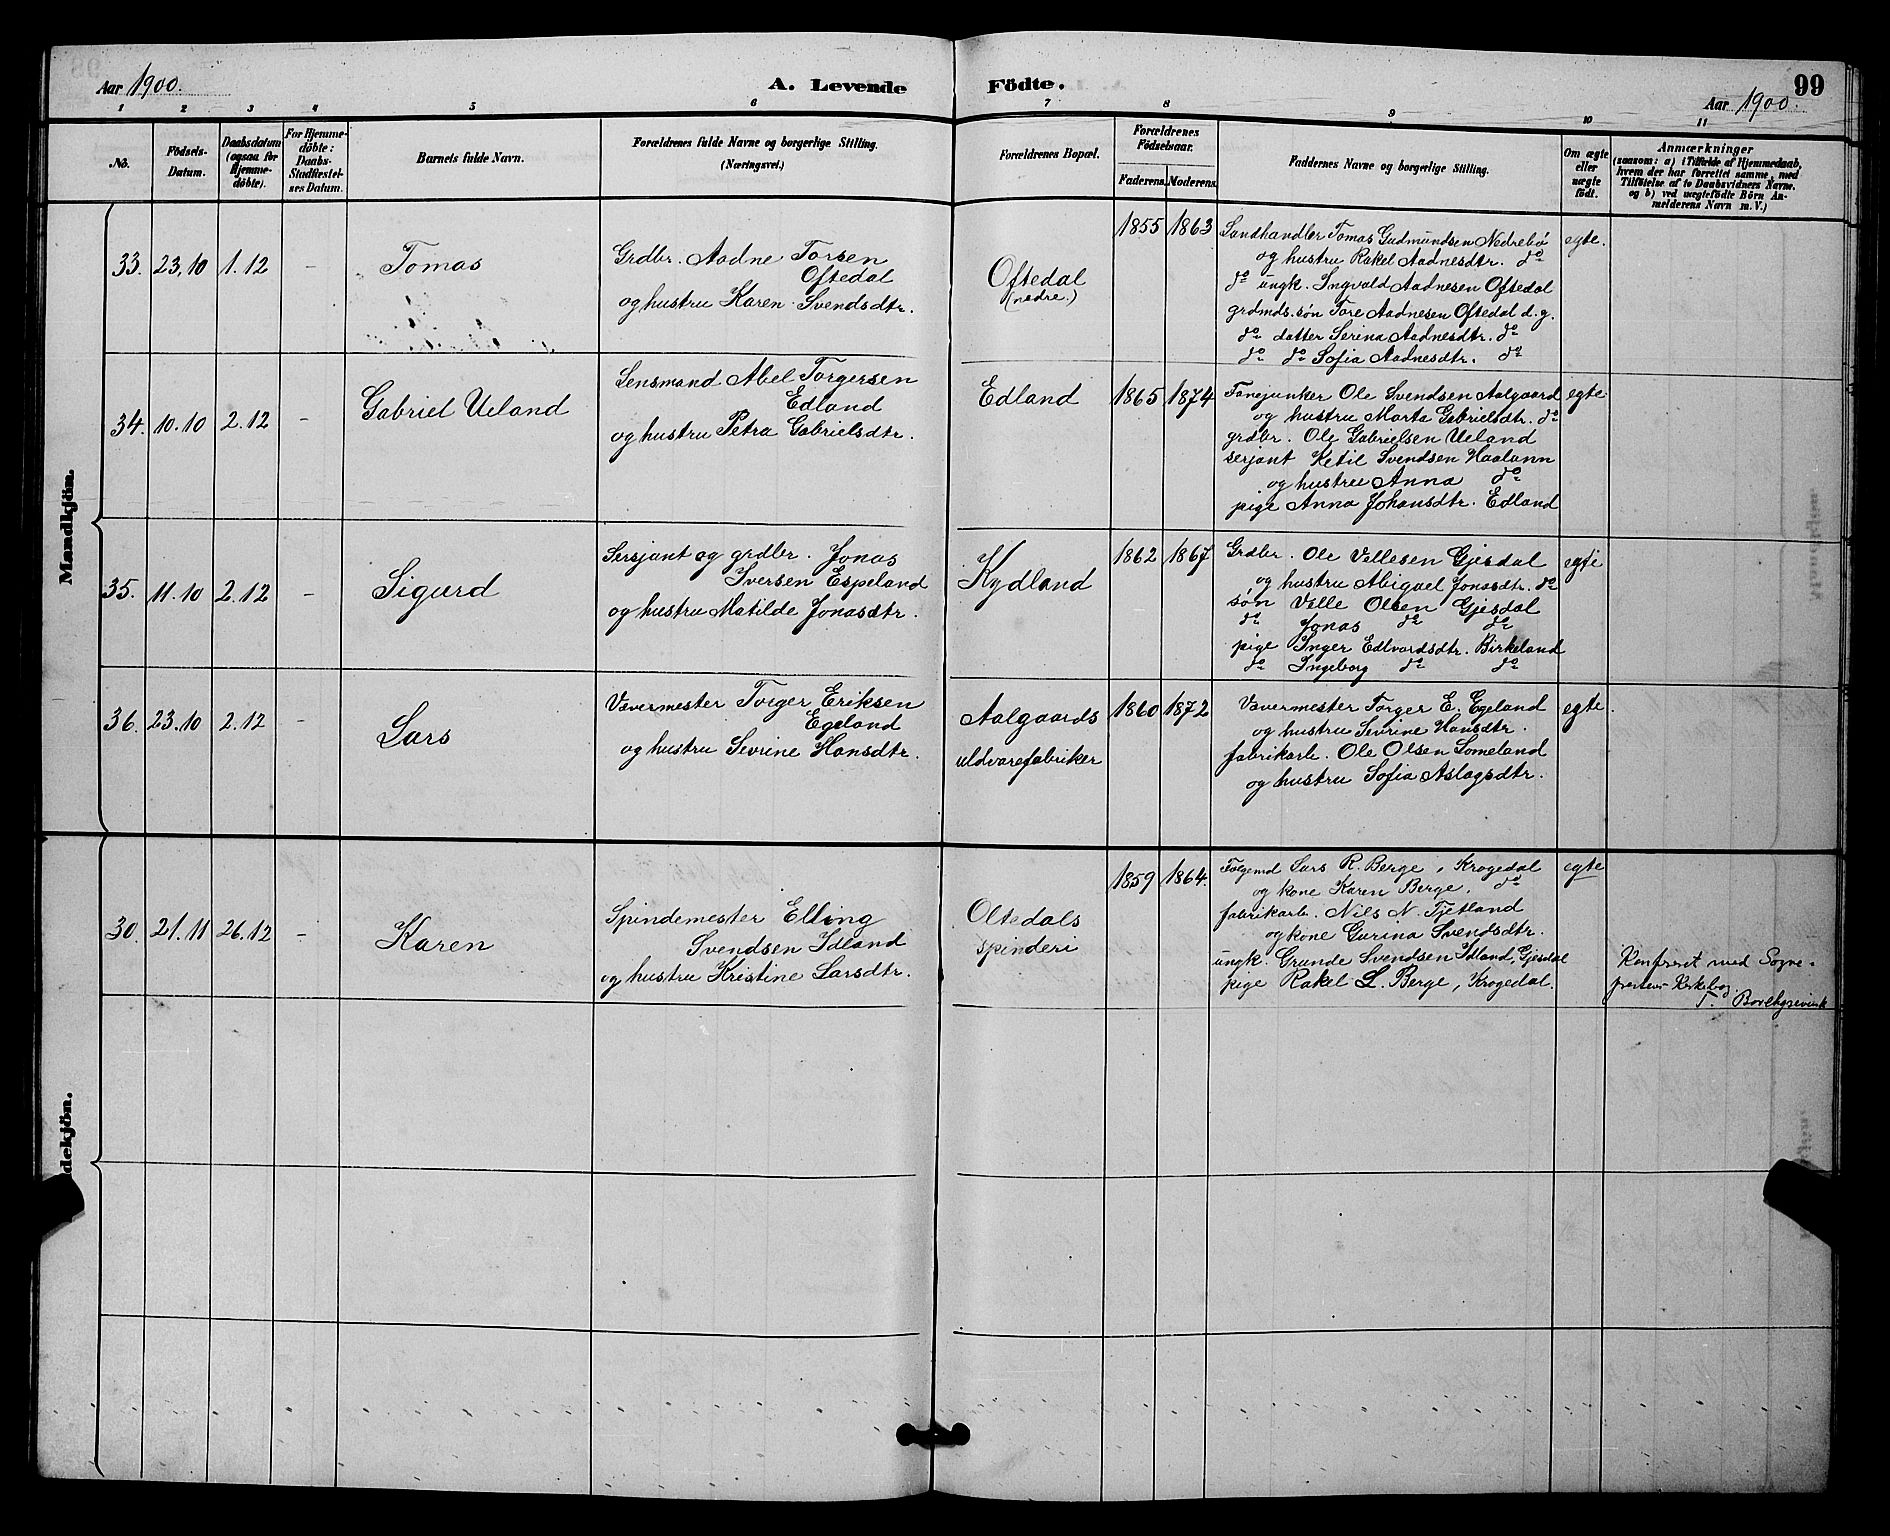 Aar 1900.
A. Levende Födte.
99
Aar 1900.
1 2 3 4 5 6 7 8 9 10 11
No.
Födsels-
Datum.
Daabsdatum
(ogsaa for
Hjemme-
döbte).
For Hjemme-
döbte:
Daabs-
Stadfæstel-
ses Datum.
Barnets fulde Navn.
Forældrenes fulde Navne og borgerlige Stilling.
(Næringsvei.)
Forældrenes Bopæl.
Forældrenes
Födselsaar.
Faderens. Moderens.
Faddernes Navne og borgerlige Stilling.
Om ægte
eller
uægte
födt.
Anmærkninger
(saasom: a) i Tilfælde af Hjemmedaab,
hvem der har forrettet samme, med
Tilföielse af to Daabsvidners Navne,
og b) ved uægtefödte Börn An-
melderens Navn m. V.)
Mandkjön.
33. 23.10 1.12 –
Tomas
Grdbr. Aadne Torsen
Oftedal
og hustru Karen Svendsdtr.
Oftedal
(nedre.)
1855 1863
Landhandler Tomas Gudmundsen Nedrebø
og hustru Rakel Aadnesdtr. do
do ungk. Ingvald Aadnesen Oftedal
grdmds. søn Tore Aadnesen Oftedal d.g.
do datter Serina Aadnesdtr. do
do do Sofia Aadnesdtr. do
egte.
34. 10.10 2.12 –
Gabriel Ueland
Lensmand Abel Torgersen
Edland
og hustru Petra Gabrielsdtr.
Edland
1865 1874
Fanejunker Ole Svendsen Aalgaard
og hustru Marta Gabrielsdtr. do
grdbr. Ole Gabrielsen Ueland
serjant Ketil Svendsen Haalann
og hustru Anna do
pige Anna Johansdtr. Edland
egte
35. 11.10 2.12 –
Sigurd
Sersjant og grdbr. Jonas
Iversen Espeland
og hustru Matilde Jonasdtr.
Kydland
1862 1867
Grdbr. Ole Vellesen Gjesdal
og hustru Abigael Jonasdtr. do
søn Velle Olsen Gjesdal
do Jonas do do
pige Inger Edvardsdtr. Birkeland
do Ingeborg do do
egte
36. 23.10 2.12 –
Lars
Vævermester Torger Eriksen
Egeland
og hustru Sevrine Hansdtr.
Aalgaards
uldvarefabriker
1860 1872
Vævermester Torger E. Egeland
og hustru Sevrine Hansdtr.
fabrikarb. Ole Olsen Lomeland
og hustru Sofia Aslagsdtr.
egte
dekjön.
30. 21.11 26.12 –
Karen
Spindemester Elling
Svendsen Idland
og hustru Kristine Larsdtr.
Oltedals
spinderi
1859 1864.
Følgemd Lars R. Berge, Krogedal
og kone Karen Berge, do
fabrikarb. Nils N. Tjetland
og kone Gurina Svendsdtr.
ungk. Grunde Svendsen Idland, Gjesdal
pige Rakel L. Berge, Krogedal.
egte
Konfereret med Sogne-
prestens Kirkebog.